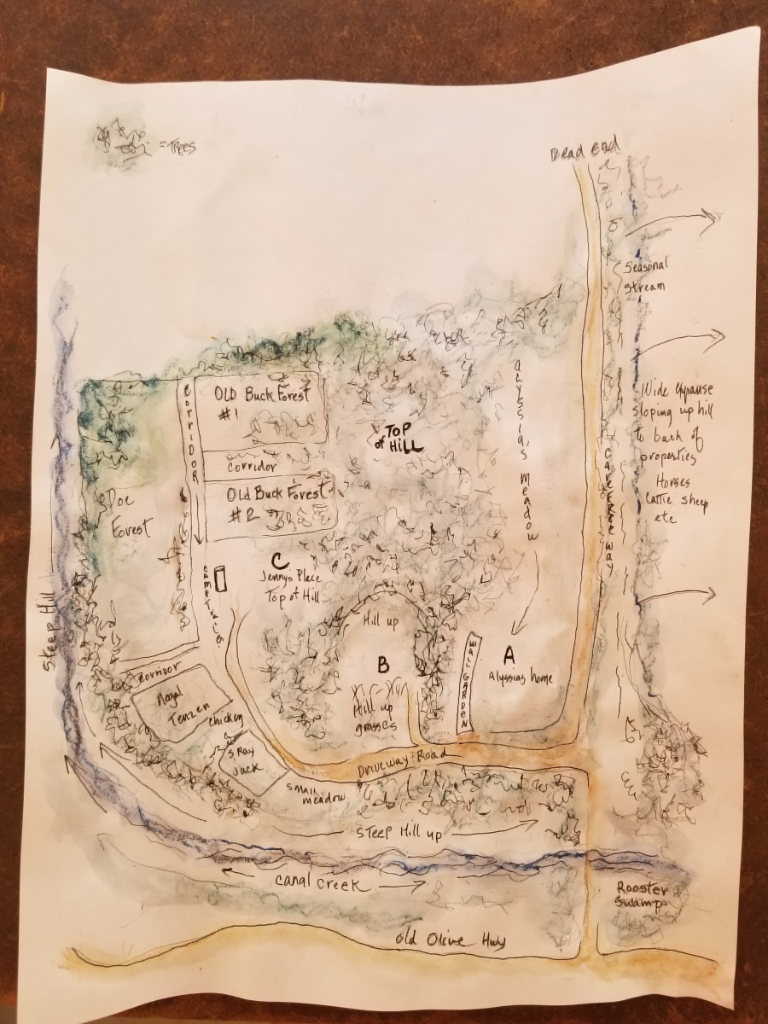 = Trees
Dead End
Seasonal
Stream
Wide expanse
sloping up hill
to back of
properties
Horses
cattle sheep
etc
OLD Buck Forest
#1
CORRIDOR
Corridor
Old Buck Forest
#2
TOP
of HILL
alyssia's meadow
Doe
Forest
C
Jennys Place
Top of Hill
Hill up
B
Hill up
grasses
WALL GARDEN
A
Alyssias home
Steep Hill
Corridor
Nagal
Tenzen
chicken
Jack
small
meadow
Driveway Road
Steep Hill up
canal creek
Rooster
Swamp
old Olive Hwy